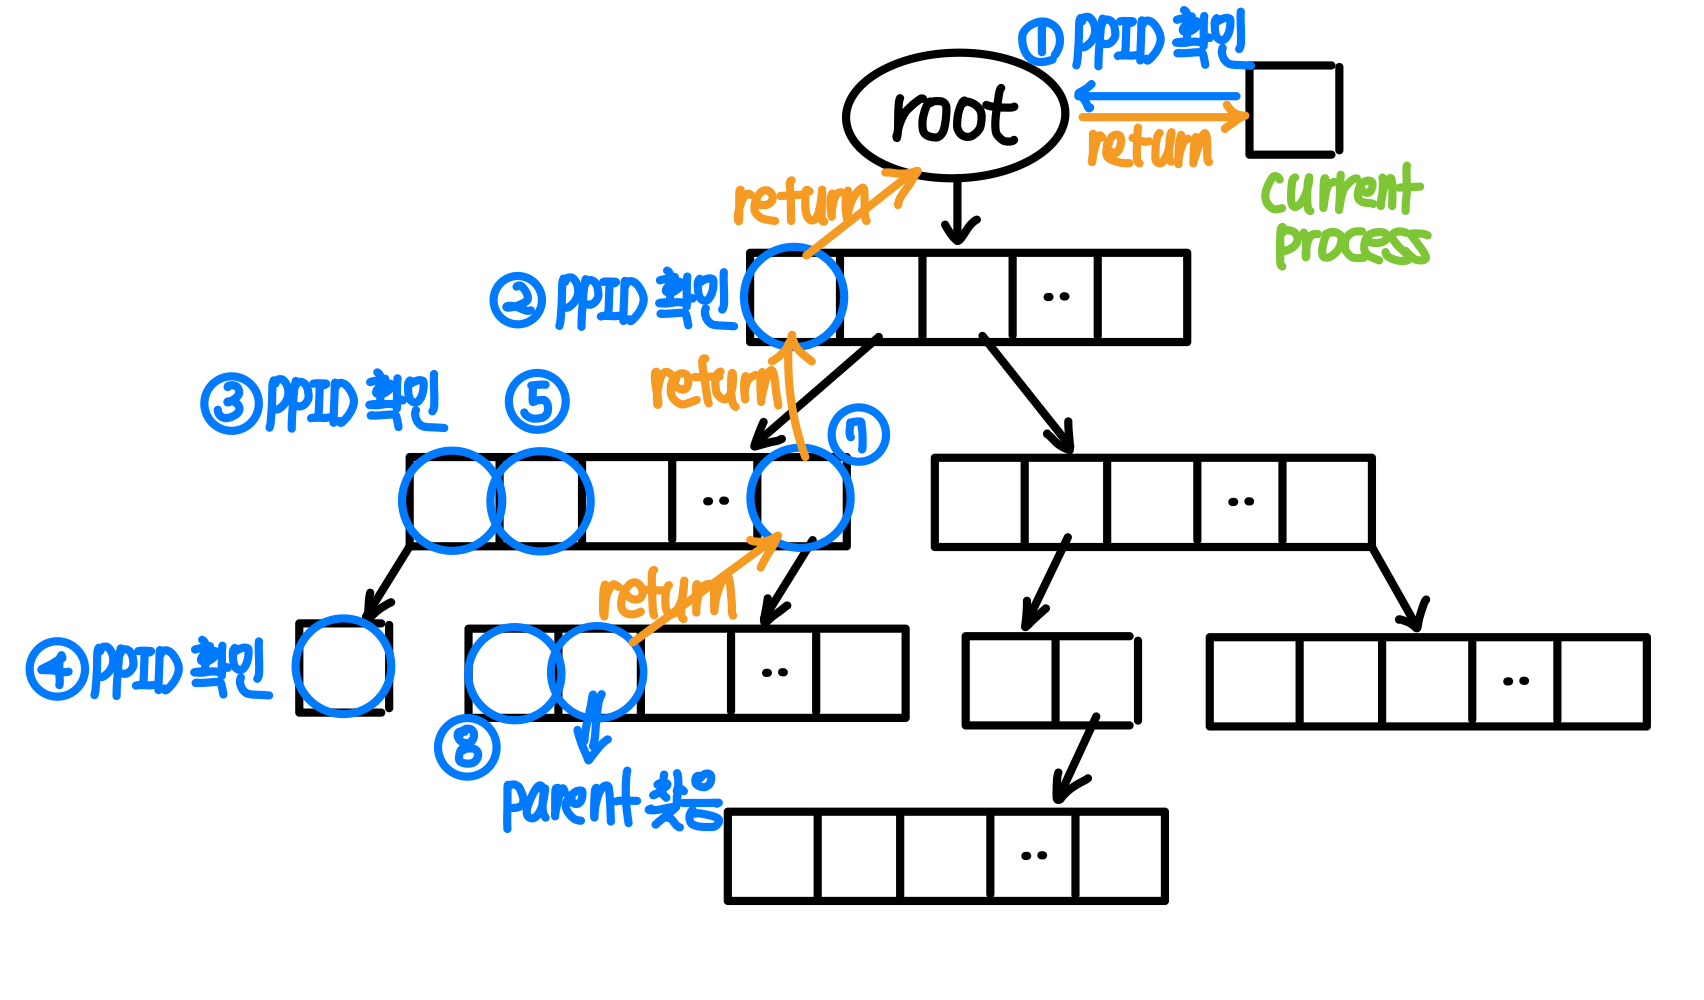 ① PPID 확인
root
return
current
process
return
② PPID 확인
return
③ PPID 확인
⑤
⑦
return
④ PPID 확인
⑧
parent 찾음